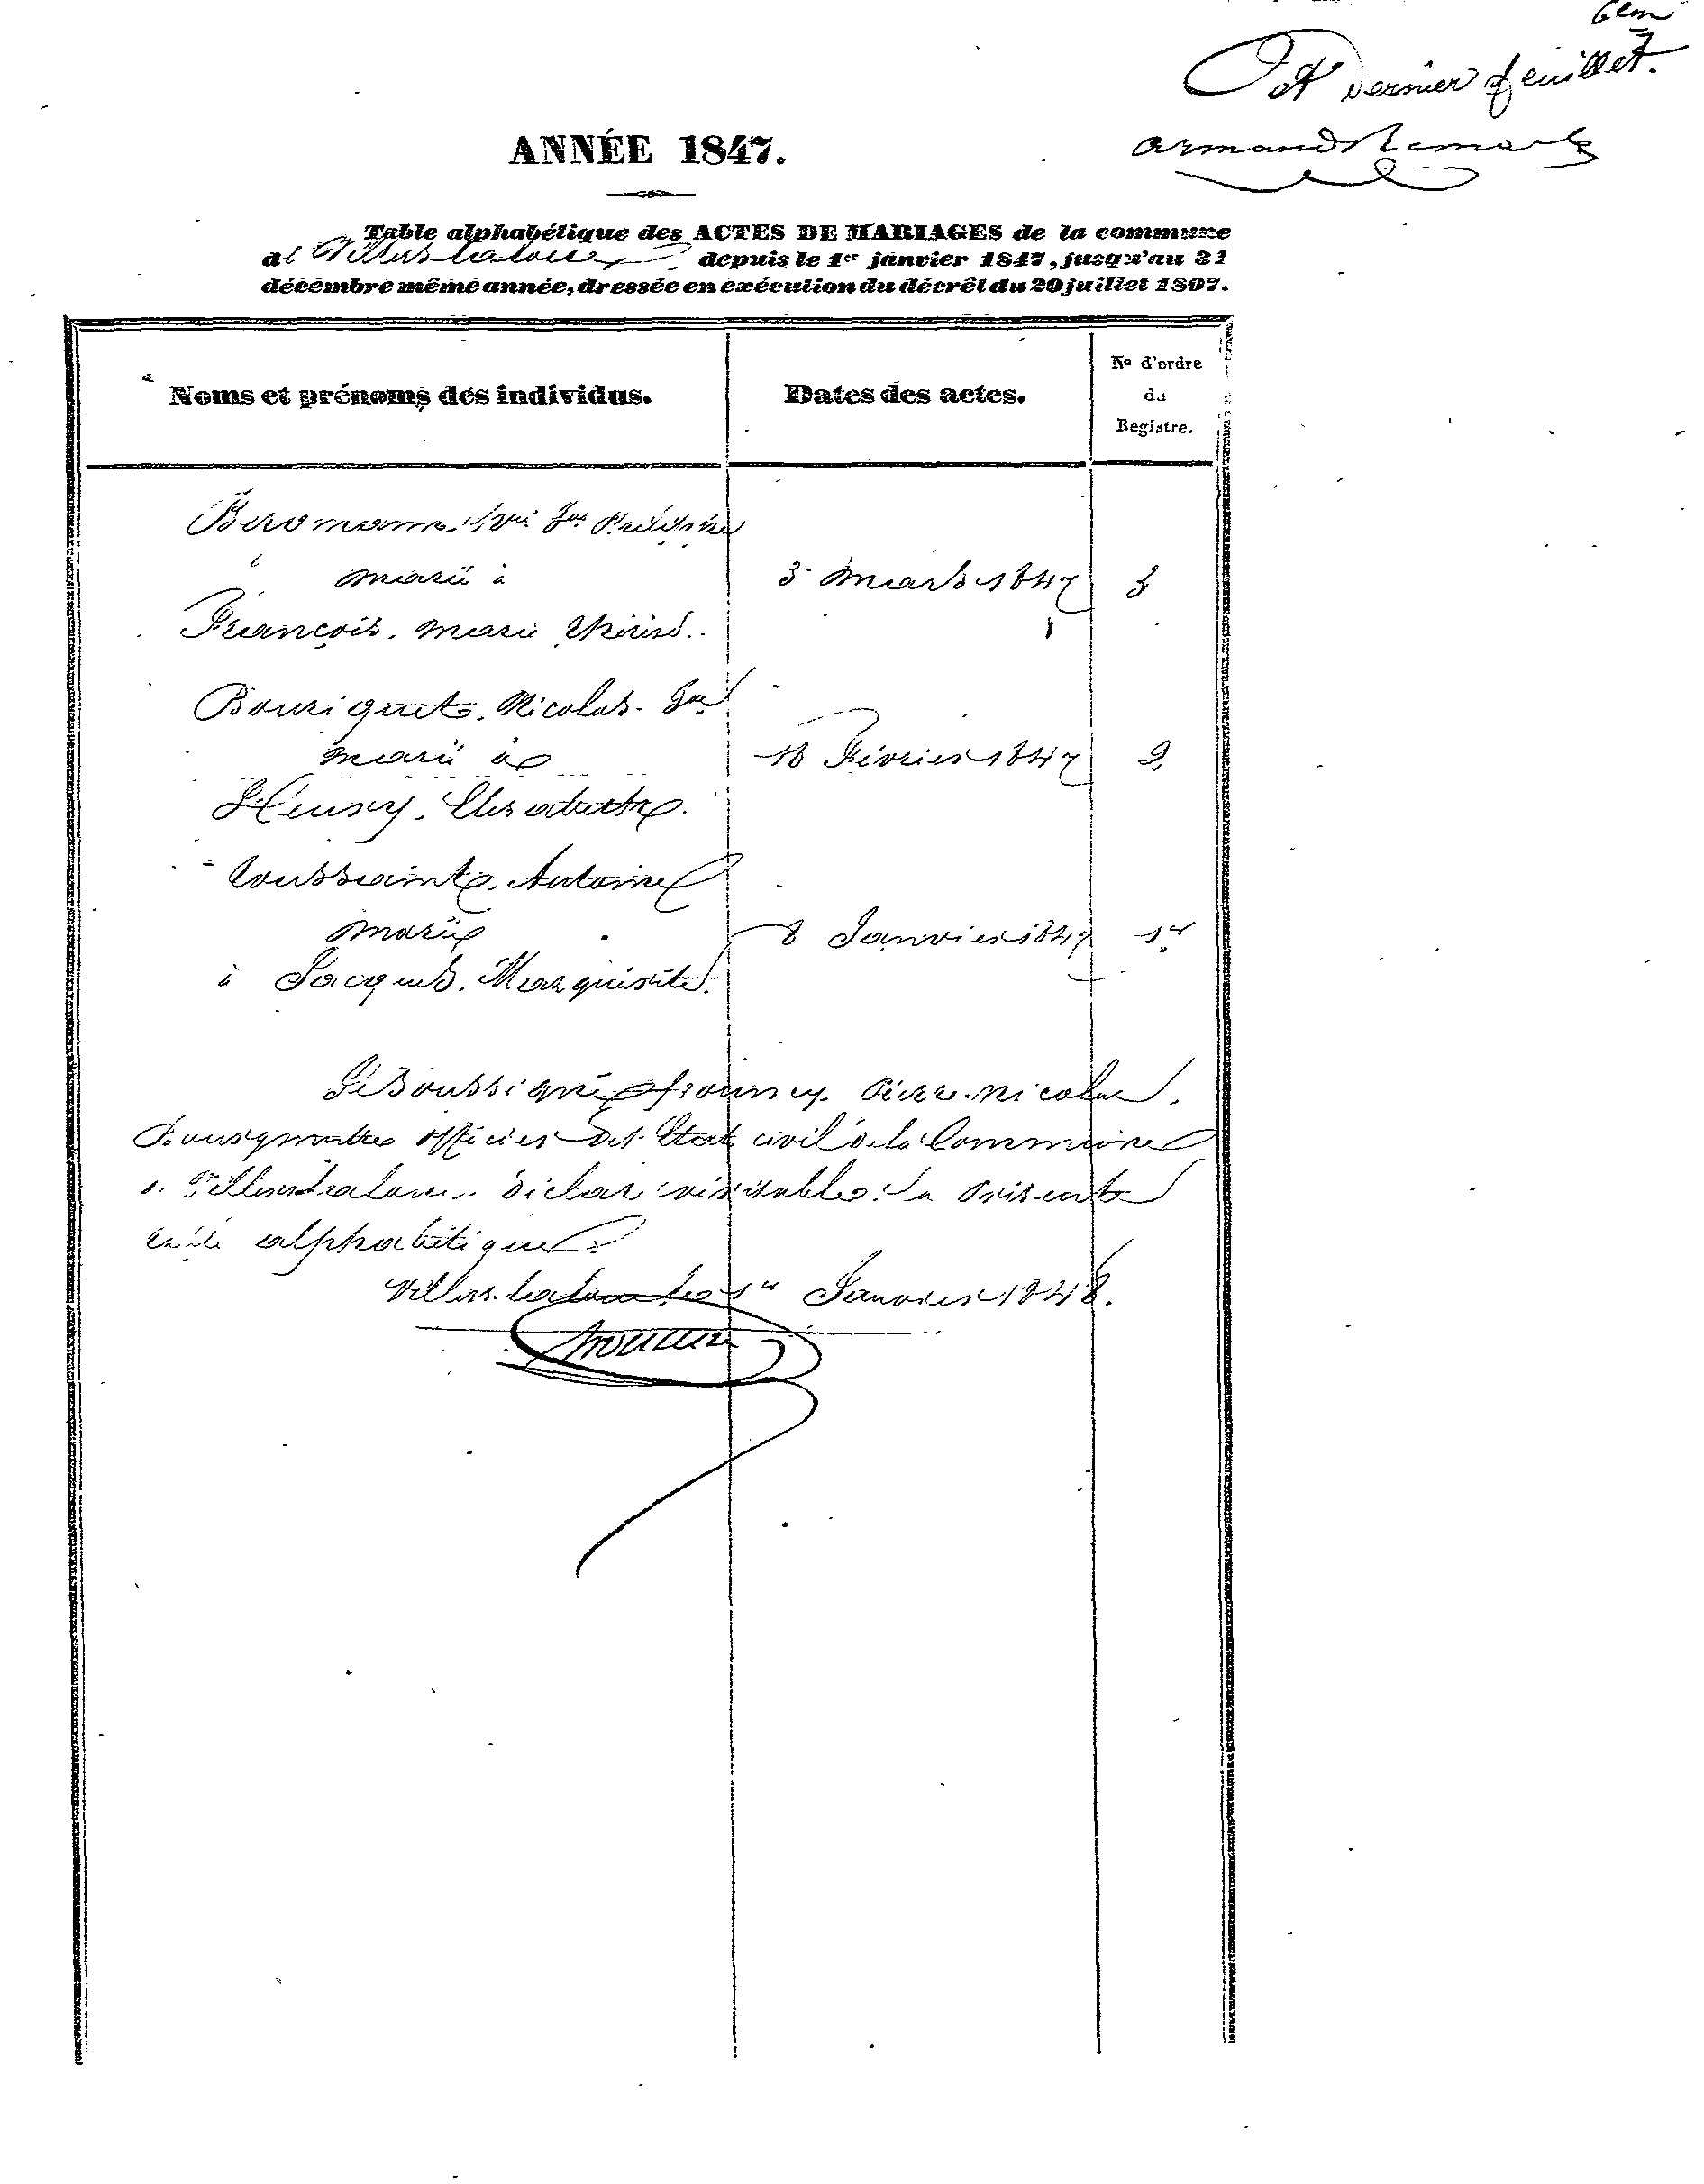 6em
et Dernier feuillet.
ANNÉE 1847.
Table alphabétique des ACTES DE MARIAGES de la commune
de Villers la loue depuis le 1er janvier 1847, jusqu'au 31
décembre même année, dressée en exécution du décrêt du 20 juillet 1807.
Noms et prénoms des individus.
Dates des actes.
No d'ordre
du
Registre.
marié à
3 Mars 1847
3
François. Marie
Bouriguet. Nicolas.
marié à
18 Février 1847
2
Henry. Elisabeth.
Toussaint. Antoine
marié
8 Janvier 1847
1er
à Jacques. Marguerite.
Le Soussigné Pierre. Nicolas.
Bourgmestre officier de l'Etat civil de la Commune
la présente
table alphabétique
Villers. la loue le 1er Janvier 1848.